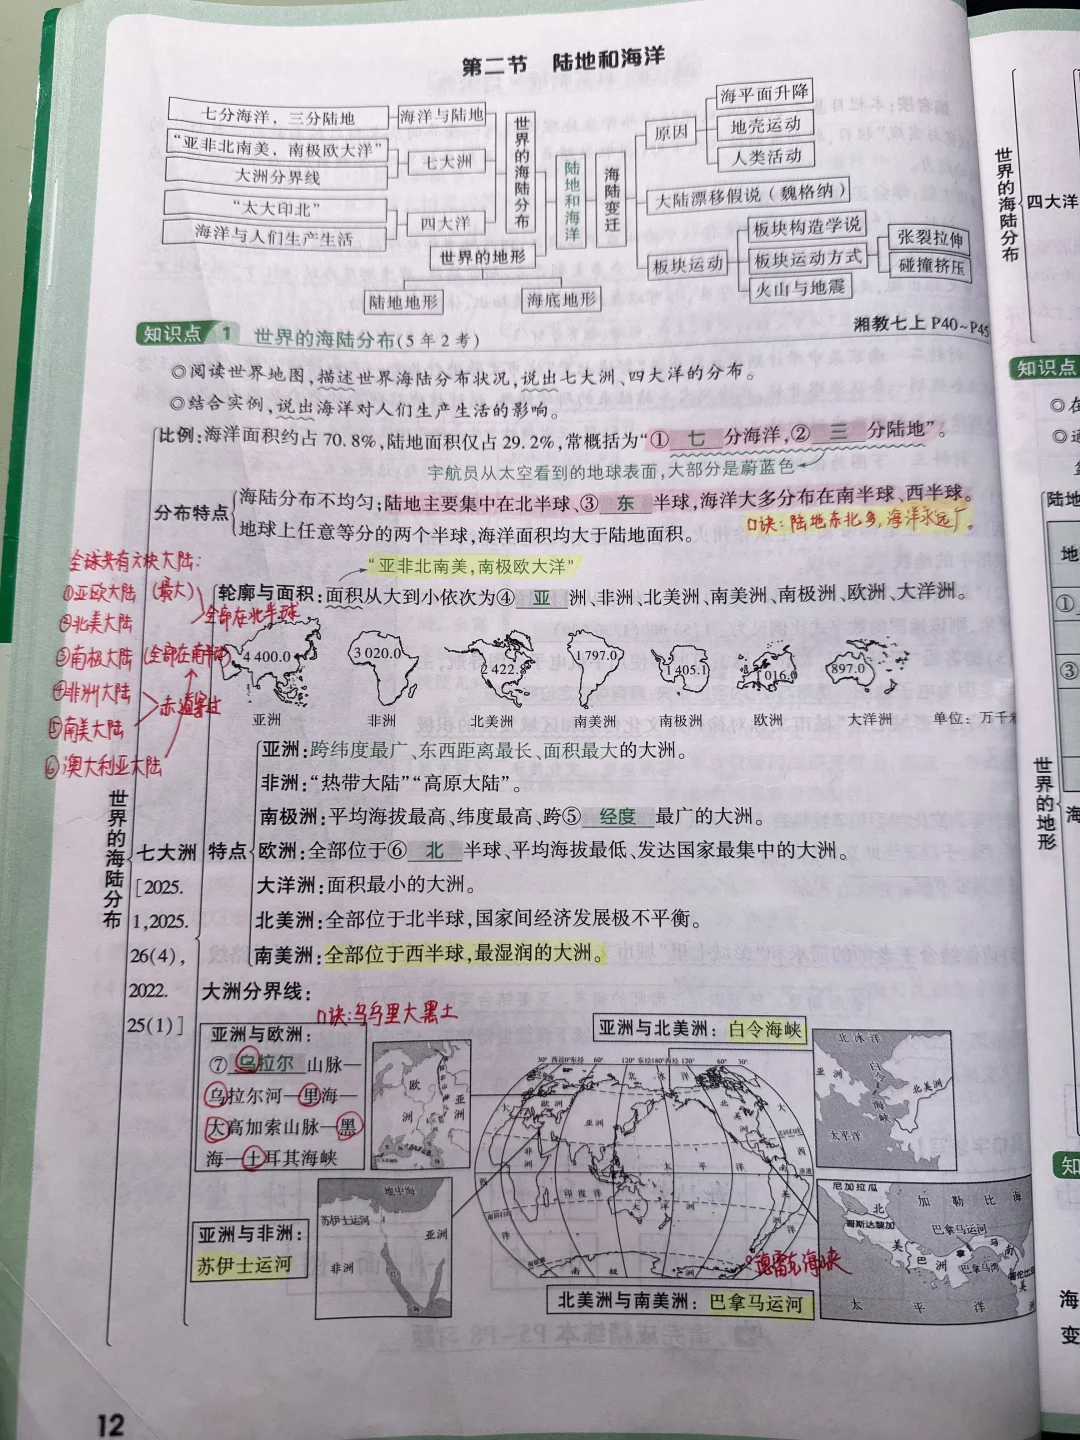 第二节 陆地和海洋
七分海洋，三分陆地
海洋与陆地
“亚非北南美，南极欧大洋”
大洲分界线
七大洲
“太大印北”
海洋与人们生产生活
四大洋
世界的海陆分布
世界的地形
陆地地形
海底地形
陆地和海洋
海陆变迁
原因
海平面升降
地壳运动
人类活动
大陆漂移假说（魏格纳）
板块运动
板块构造学说
板块运动方式
火山与地震
张裂拉伸
碰撞挤压
知识点 1 世界的海陆分布(5年2考)
湘教七上P40~P45
◎阅读世界地图,描述世界海陆分布状况,说出七大洲、四大洋的分布。
◎结合实例,说出海洋对人们生产生活的影响。
比例:海洋面积约占70.8%,陆地面积仅占29.2%,常概括为“① 七 分海洋,② 三 分陆地”。
宇航员从太空看到的地球表面,大部分是蔚蓝色
分布特点
海陆分布不均匀;陆地主要集中在北半球、③ 东 半球,海洋大多分布在南半球、西半球。
口诀:陆地东北多,海洋永远广。
地球上任意等分的两个半球,海洋面积均大于陆地面积。
全球共有六块大陆:
①亚欧大陆 (最大)
②北美大陆
全部在北半球
③南极大陆 (全部在南半球)
④非洲大陆
⑤南美大陆
赤道穿过
⑥澳大利亚大陆
“亚非北南美,南极欧大洋”
轮廓与面积:面积从大到小依次为④ 亚 洲、非洲、北美洲、南美洲、南极洲、欧洲、大洋洲。
4 400.0
3 020.0
2 422.
1 797.0
1 405.1
1 016.0
897.0
亚洲 非洲 北美洲 南美洲 南极洲 欧洲 大洋洲 单位：万千米
世界的海陆分布
七大洲
[2025.
1,2025.
26(4),
2022.
25(1)]
特点
亚洲:跨纬度最广、东西距离最长、面积最大的大洲。
非洲:“热带大陆”“高原大陆”。
南极洲:平均海拔最高、纬度最高、跨⑤ 经度 最广的大洲。
欧洲:全部位于⑥ 北 半球、平均海拔最低、发达国家最集中的大洲。
大洋洲:面积最小的大洲。
北美洲:全部位于北半球,国家间经济发展极不平衡。
南美洲:全部位于西半球,最湿润的大洲。
大洲分界线:
口诀:乌乌里大黑土
亚洲与欧洲:
⑦ 乌拉尔 山脉—
乌拉尔河—里海—
大高加索山脉—黑
海—土耳其海峡
欧
洲
亚
洲
亚洲与北美洲：白令海峡
北冰洋
亚 洲
白
令
海
峡
北美洲
太平洋
30° 西经0°东经 60° 120° 东经180°西经 120° 60° 30°
北 冰 洋
欧洲
亚洲
非洲
印度洋
太 平 洋
大
洋
洲
南 极
亚洲与非洲：
苏伊士运河
地中海
苏伊士运河
亚洲
非洲
德雷克海峡
北美洲与南美洲：巴拿马运河
尼加拉瓜
加 勒 比 海
哥斯达黎加
北
美
洲
巴拿马运河
巴
拿
马
巴拿马湾
南
美
太 平 洋
12
世界的海陆分布
四大洋
知识点
陆地
地
①
③
世界的地形
海
知
海
变